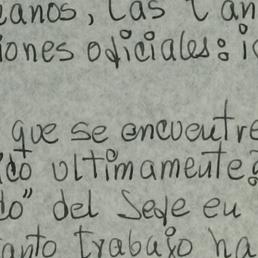 eanos, las tan
iones oficiales: i
que se encuentre
ico ultimamente?
do" del Seje en
anto trabajo ha